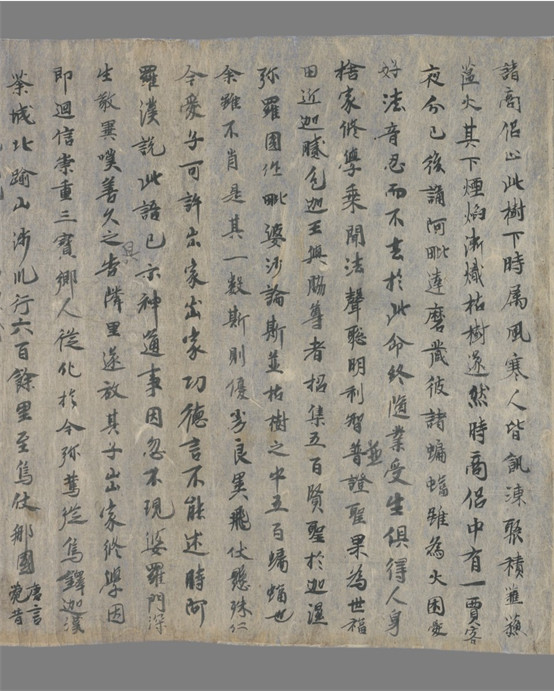 諸商侶止此樹下時属風寒人皆飢凍聚積樵蘇
蘊火其下煙焰漸熾枯樹遂然時商侶中有一賈客
夜分已後誦阿毗達磨藏彼諸蝙蝠雖為火困愛
好法音忍而不去於此命終随業受生俱得人身
捨家修學乗聞法聲聦明利智並普證聖果為世福
田近迦膩色迦王與脇尊者招集五百賢聖於迦濕
弥羅國作毗婆沙論斯並枯樹之中五百蝙蝠也
余雖不肖是其一數斯則優劣良異飛伏懸殊仁
今愛子可許出家出家功德言不能述時阿
羅漢說此語已示神通事因忽不現婆羅門深
生敬異嘆善久之具告隣里遂放其子出家修學因
即迴信崇重三寳鄉人従化於今弥篤従烏鐸迦漢
荼城北踰山涉川行六百餘里至烏仗那國唐言菀昔